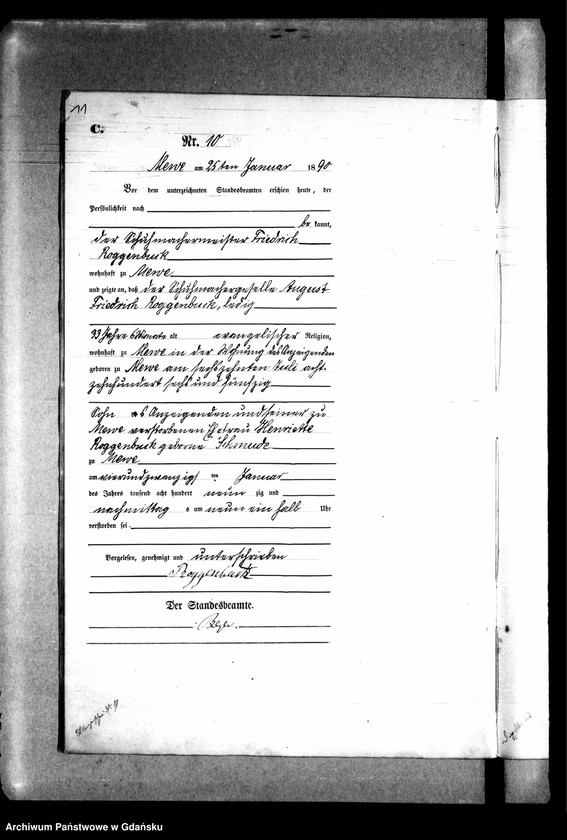 11
C.
Nr. 10
Mewe am 25ten Januar 1890
Vor dem unterzeichneten Standesbeamten erschien heute, der
Persönlichkeit nach
be kannt,
der Schuhmachermeister Friedrich
Roggenbuck
wohnhaft zu Mewe
und zeigte an, daß der Schuhmachergeselle August
Friedrich Roggenbuck, ledig
33 Jahre 6 Monate alt evangelischer Religion,
wohnhaft zu Mewe in der Wohnung des Anzeigenden
geboren zu Mewe am sechszehnten Juli acht-
zehnhundert sechs und fünfzig
Sohn des Anzeigenden und seiner zu
Mewe verstorbenen Ehefrau Henriette
Roggenbuck geborne Schmude
zu Mewe
am vierundzwanzigsten Januar
des Jahres tausend acht hundert neun zig und
nachmittags um neun ein halb Uhr
verstorben sei.
Vorgelesen, genehmigt und unterschrieben
Roggenbuck
Der Standesbeamte.
Archiwum Państwowe w Gdańsku